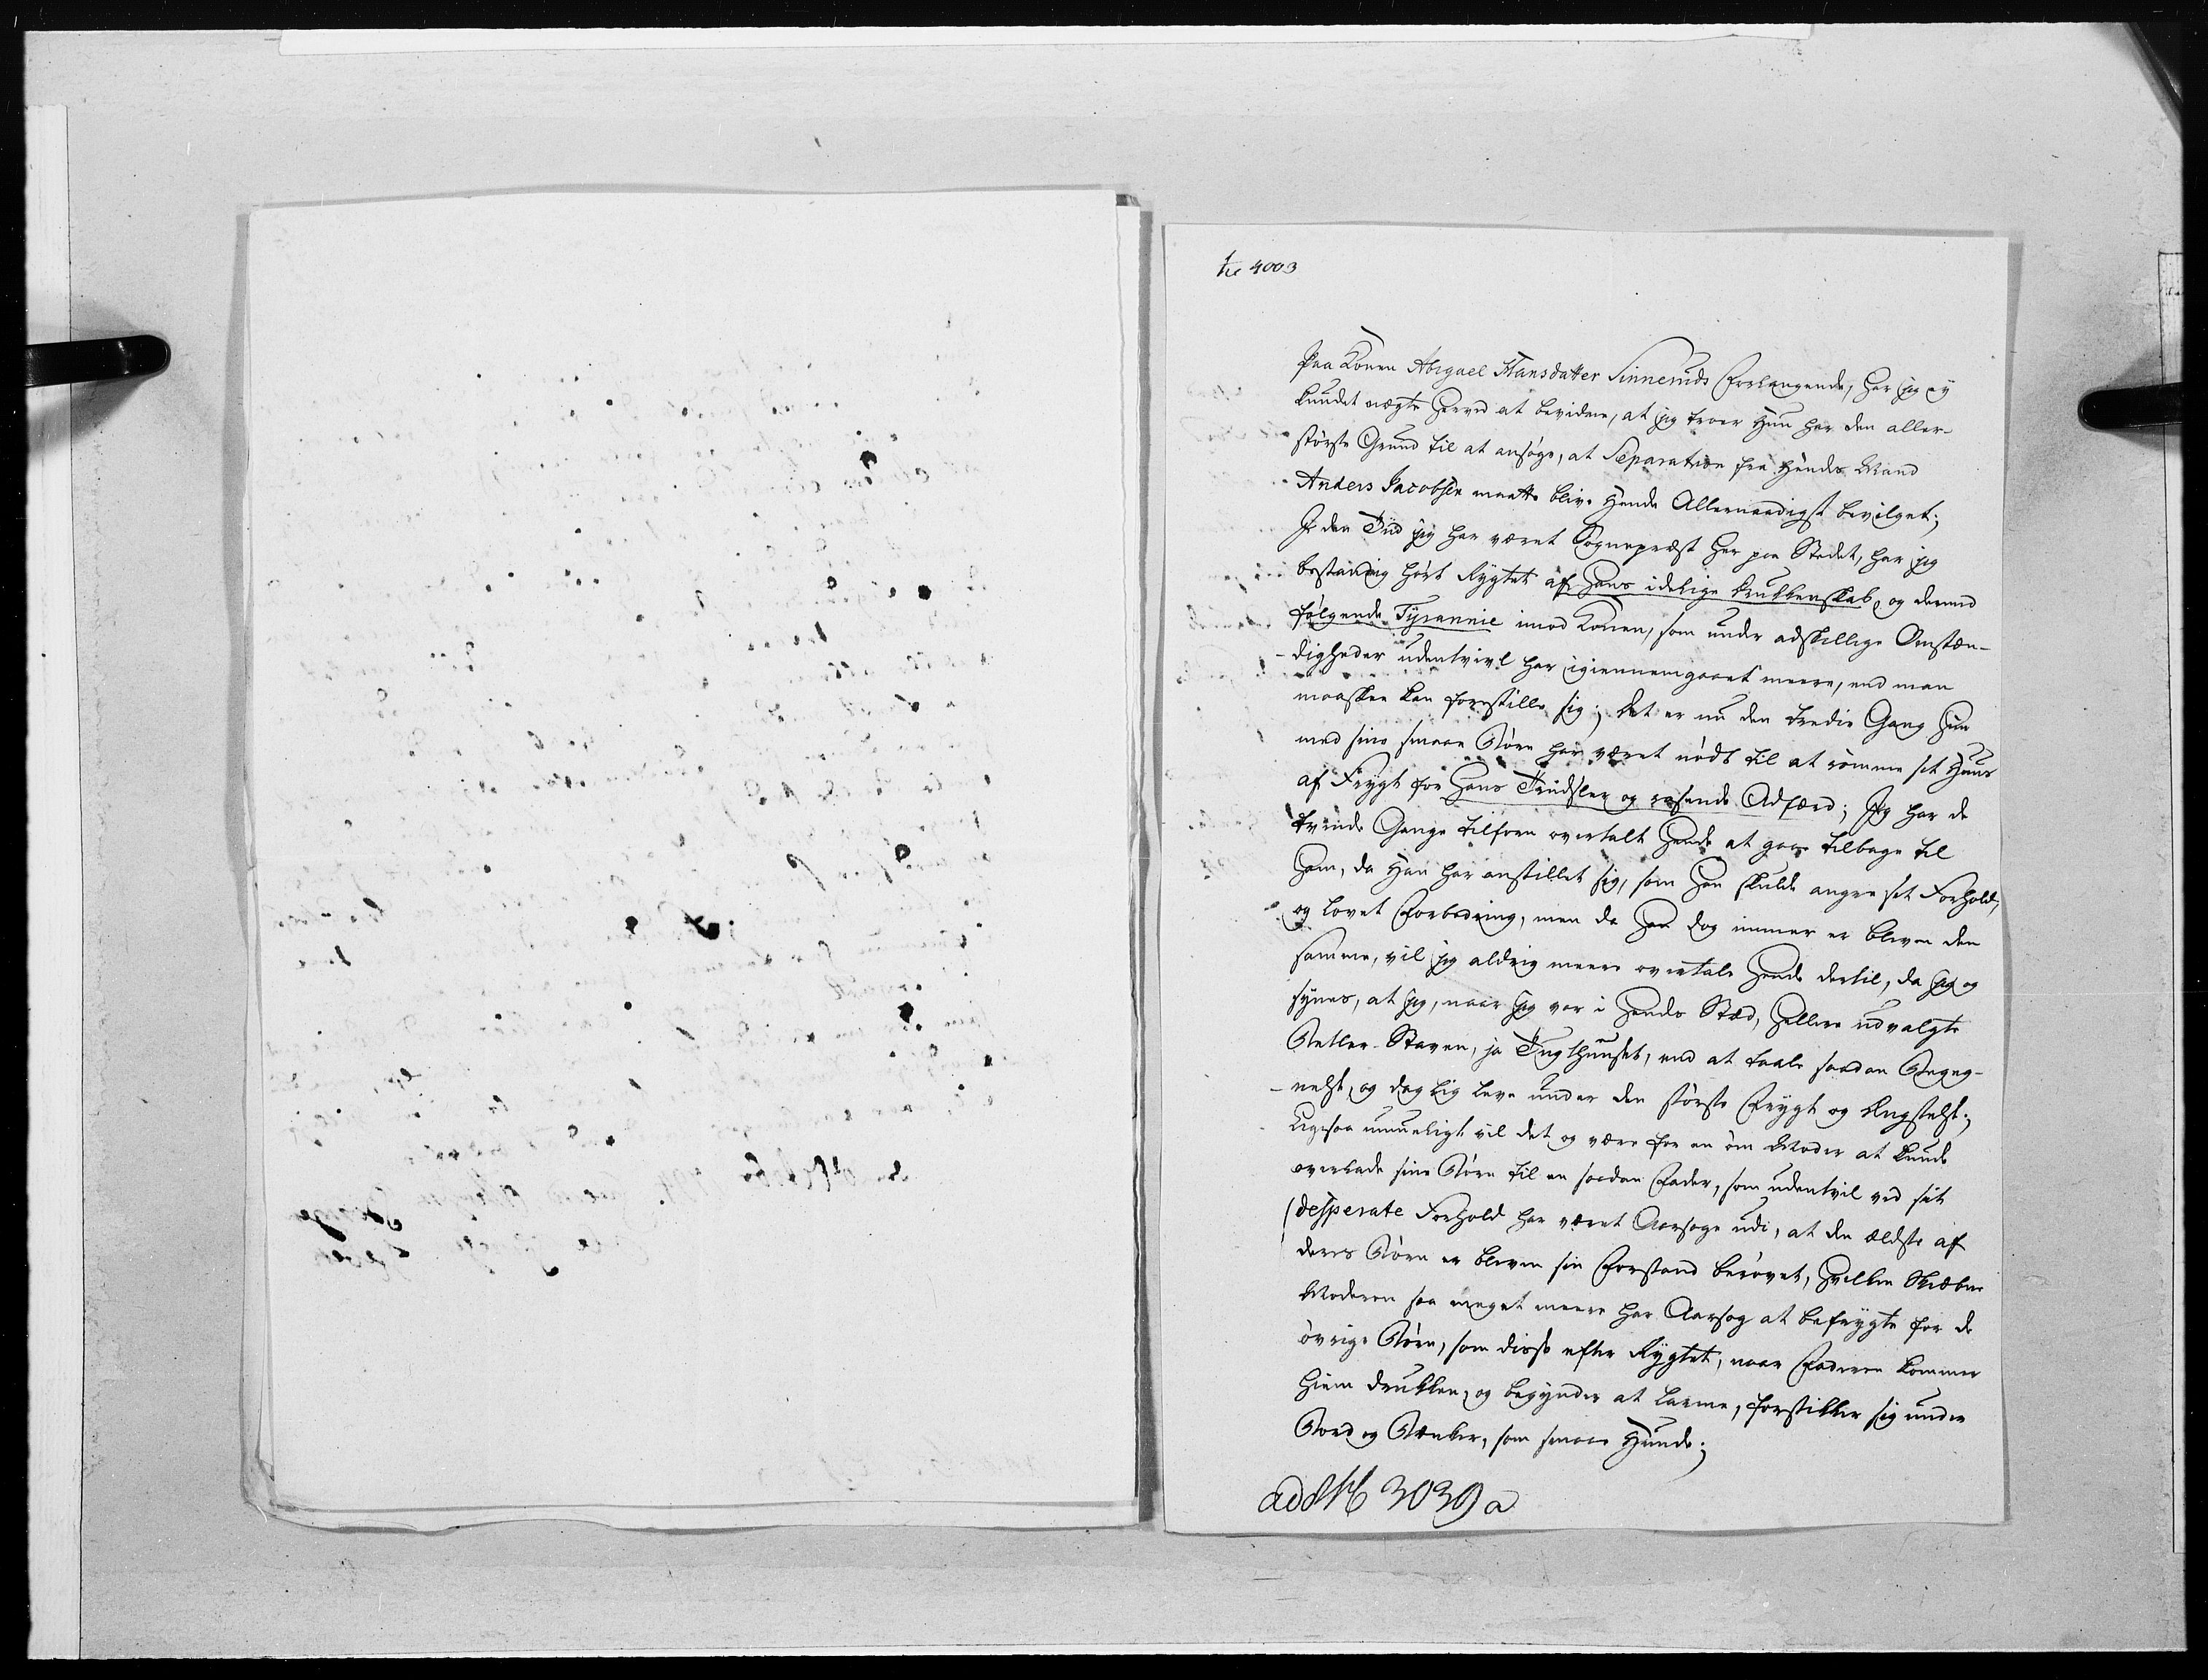 4003
Paa Konen Abigael Hansdatter Sinneruds Forlangende, har jeg ey
kundet nægte herved at bevidne, at jeg troer Hun har den aller-
störste Grund til at ansöge, at Separation fra Hendes Mand
Anders Jacobsen maatte blive Hende Allernaadigst bevilget;
I den Tiid jeg har været Sognepræst her paa Stedet, har jeg
bestandig hört Rygtet af Hans idelige Drukkenskab, og dermed
fölgende Tyrannie imod Konen, som under adskillige Omstæn-
-digheder udentvivl har igiennemgaaet meere, end man
maaskee kan forestille sig; Det er nu den tredie Gang Hun
med sine smaae Börn har været nödt til at römme sit Huus
af Frygt for Hans Trudsler og rasende Adfærd; Jeg har de
tvende Gange tilforn overtalt Hende at gaae tilbage til
Ham, da Han har anstillet sig, som Han skulde angre sit Forhold,
og lovet Forbedring, men da Han dog immer er bleven den
samme, vil jeg aldrig meere overtale Hende dertil, da jeg og
synes, at jeg, naar jeg var i Hendes Sted, hellere udvalgte
Betler-Staven, ja Tugthuuset, end at taale saadan Begeg-
-nelse, og daglig leve under den störste Frygt og Ængstelse;
Ligesaa umueligt vil det og være for en öm Moder at kunde
overlade sine Börn til en saadan Fader, som udentvil ved sit
desperate Forhold har været Aarsage udi, at den ældste af
deres Börn er bleven sin Forstand berövet, hvilken Skiæbne
Moderen saa meget meere har Aarsag at befrygte for de
övrige Börn, som disse efter Rygtet, naar Faderen kommer
hiem drukken, og begynder at larme, forstikker sig under
Bord og Bænker, som smaae Hunde;
ad No 3039 a